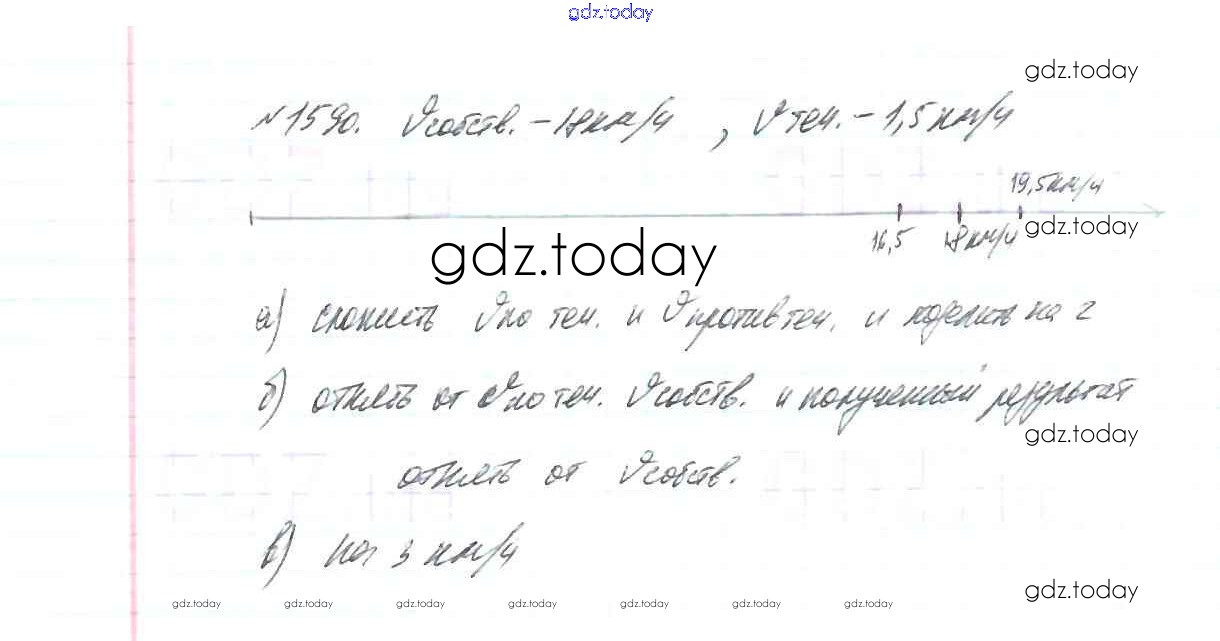 gdz.today
gdz.today
№1590. Vсобств. – 18 км/ч , V теч. – 1,5 км/ч
19,5 км/ч
16,5 18 км/ч
gdz.today
gdz.today
а) сложить Vпо теч. и Vпротив теч. и поделить на 2
б) отнять от Vпо теч. Vсобств. и полученный результат
gdz.today
отнять от Vсобств.
в) на 3 км/ч
gdz.today
gdz.today gdz.today gdz.today gdz.today gdz.today gdz.today gdz.today